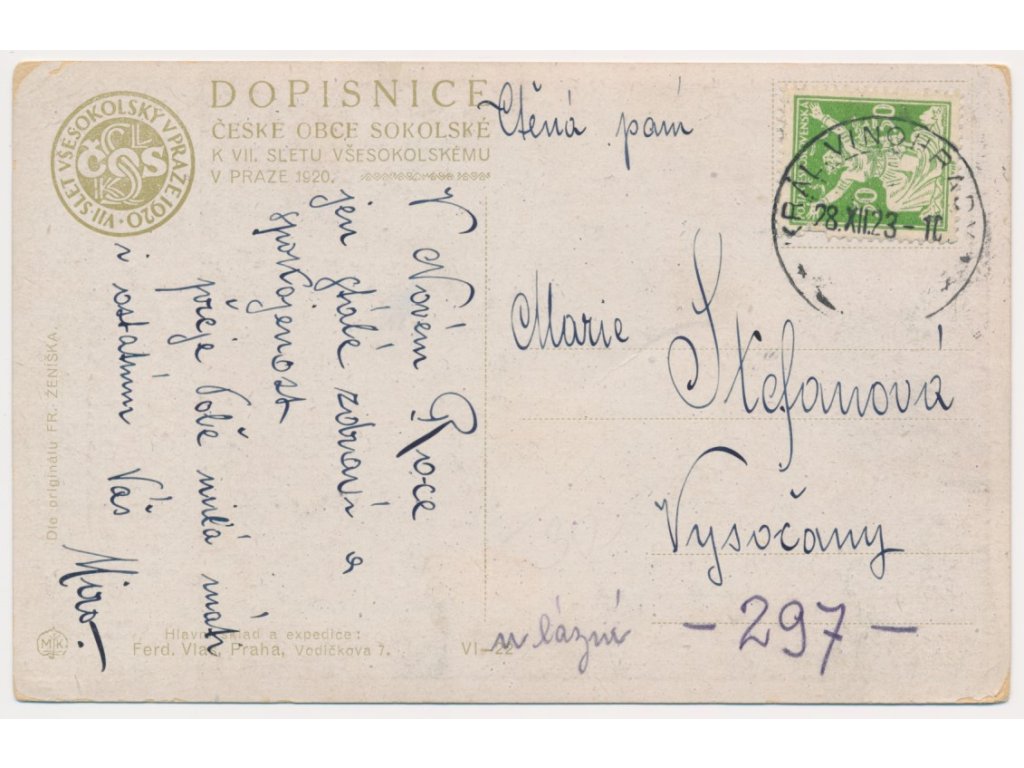 DOPISNICE
ČESKÉ OBCE SOKOLSKÉ
K VII. SLETU VŠESOKOLSKÉMU
V PRAZE 1920.
VII. SLET VŠESOKOLSKÝ V PRAZE 1920
ČOS
Ctěná paní
KRÁL. VINOHRADY
28.XII.23-10
Marie Štefanová
Vysočany
u lázné - 297 -
V Novém Roce
jen stálé zdraví a
spokojenost
přeje Tobě milá máti
i ostatním Váš
Miro.
Dle originálu FR. ŽENÍŠKA.
Hlavní sklad a expedice:
Ferd. Vlas, Praha, Vodičkova 7.
VI-22